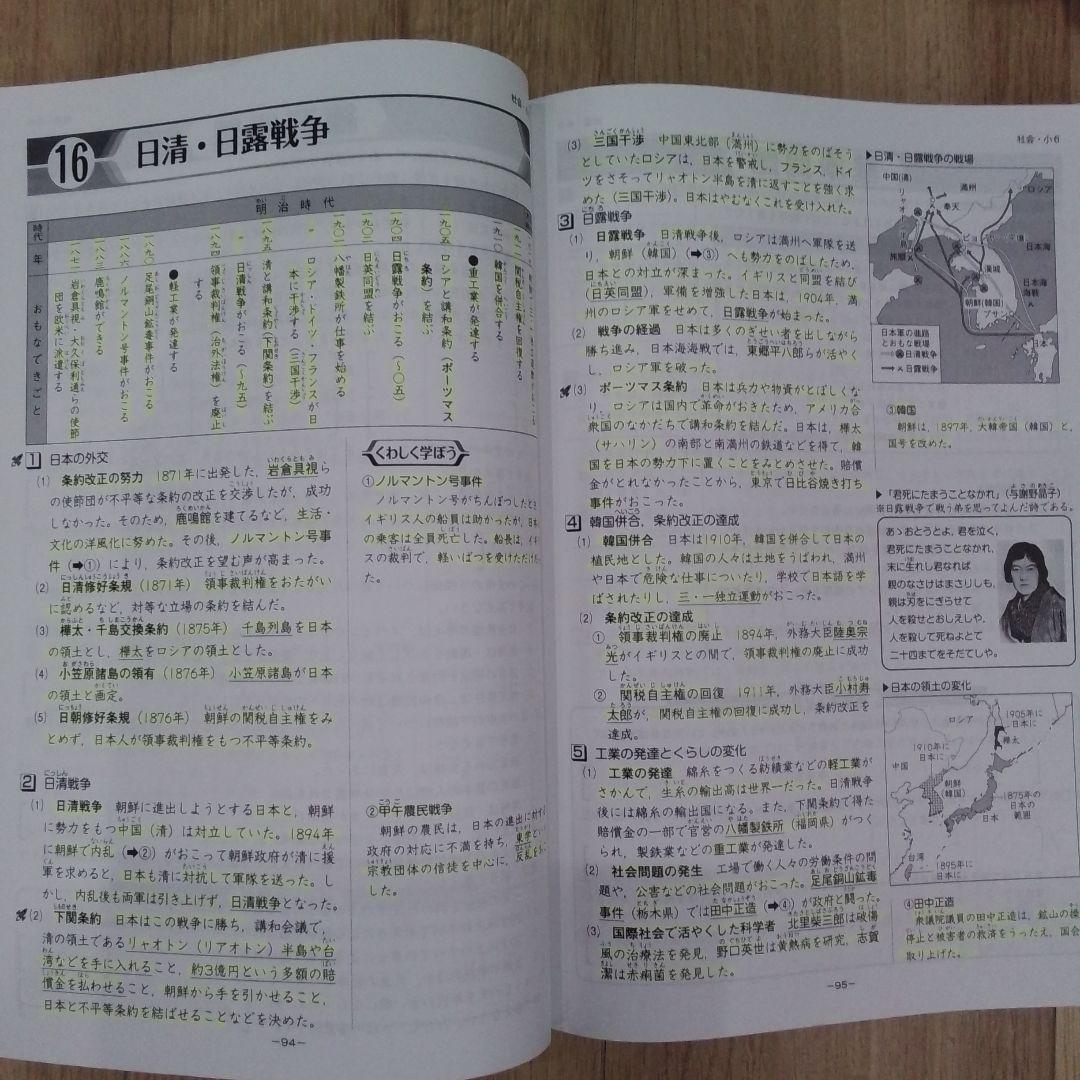 社会・
16 日清・日露戦争
時代
明治時代
年
おもなできごと
一八七一 岩倉具視・大久保利通らの使節
団を欧米に派遣する
一八八三 鹿鳴館ができる
一八八六 ノルマントン号事件がおこる
一八九〇 足尾銅山鉱毒事件がおこる
●軽工業が発達する
一八九四 領事裁判権(治外法権)を廃止
する
〃 日清戦争がおこる(〜九五)
一八九五 清と講和条約(下関条約)を結ぶ
〃 ロシア・ドイツ・フランスが日
本に干渉する(三国干渉)
一九〇一 八幡製鉄所が仕事を始める
一九〇二 日英同盟を結ぶ
一九〇四 日露戦争がおこる(〜〇五)
一九〇五 ロシアと講和条約(ポーツマス
条約)を結ぶ
●重工業が発達する
一九一〇 韓国を併合する
一九一一 関税自主権を回復する
1 日本の外交
(1) 条約改正の努力 1871年に出発した,岩倉具視ら
の使節団が不平等な条約の改正を交渉したが,成功
しなかった。そのため,鹿鳴館を建てるなど,生活・
文化の洋風化に努めた。その後,ノルマントン号事
件(➡①)により,条約改正を望む声が高まった。
(2) 日清修好条規(1871年) 領事裁判権をおたがい
に認めるなど,対等な立場の条約を結んだ。
(3) 樺太・千島交換条約(1875年) 千島列島を日本
の領土とし,樺太をロシアの領土とした。
(4) 小笠原諸島の領有(1876年) 小笠原諸島が日本
の領土と画定。
(5) 日朝修好条規(1876年) 朝鮮の関税自主権をみ
とめず,日本人が領事裁判権をもつ不平等条約。
2 日清戦争
(1) 日清戦争 朝鮮に進出しようとする日本と,朝鮮
に勢力をもつ中国(清)は対立していた。1894年
に朝鮮で内乱(➡②)がおこって朝鮮政府が清に援
軍を求めると,日本も清に対抗して軍隊を送った。し
かし,内乱後も両軍は引き上げず,日清戦争となった。
(2) 下関条約 日本はこの戦争に勝ち,講和会議で,
清の領土であるリャオトン(リアオトン)半島や台
湾などを手に入れること,約3億円という多額の賠
償金を払わせること,朝鮮から手を引かせること,
日本と不平等条約を結ばせることなどを決めた。
くわしく学ぼう
①ノルマントン号事件
ノルマントン号がちんぼつしたとき
イギリス人の船員は助かったが,日本
の乗客は全員死亡した。船長は,イギ
スの裁判で,軽いばつを受けただけだ
た。
②甲午農民戦争
朝鮮の農民は,日本の進出に対す
政府の対応に不満を持ち,東学とい
宗教団体の信徒を中心に,反乱をお
した。
－94－
社会・小6
(3) 三国干渉 中国東北部(満州)に勢力をのばそう
としていたロシアは,日本を警戒し,フランス,ドイ
ツをさそってリャオトン半島を清に返すことを強く求
めた(三国干渉)。日本はやむなくこれを受け入れた。
3 日露戦争
(1) 日露戦争 日清戦争後,ロシアは満州へ軍隊を送
り,朝鮮(韓国)(➡③)へも勢力をのばしたため,
日本との対立が深まった。イギリスと同盟を結び
(日英同盟),軍備を増強した日本は,1904年,満
州のロシア軍をせめて,日露戦争が始まった。
(2) 戦争の経過 日本は多くのぎせい者を出しながら
勝ち進み,日本海海戦では,東郷平八郎らが活やく
し,ロシア軍を破った。
(3) ポーツマス条約 日本は兵力や物資がとぼしくな
り,ロシアは国内で革命がおきたため,アメリカ合
衆国のなかだちで講和条約を結んだ。日本は,樺太
(サハリン)の南部と南満州の鉄道などを得て,韓
国を日本の勢力下に置くことをみとめさせた。賠償
金がとれなかったことから,東京で日比谷焼き打ち
事件がおこった。
4 韓国併合,条約改正の達成
(1) 韓国併合 日本は1910年,韓国を併合して日本の
植民地とした。韓国の人々は土地をうばわれ,満州
や日本で危険な仕事についたり,学校で日本語を学
ばされたりし,三・一独立運動がおこった。
(2) 条約改正の達成
① 領事裁判権の廃止 1894年,外務大臣陸奥宗
光がイギリスとの間で,領事裁判権の廃止に成功
した。
② 関税自主権の回復 1911年,外務大臣小村寿
太郎が,関税自主権の回復に成功し,条約改正を
達成。
5 工業の発達とくらしの変化
(1) 工業の発達 綿糸をつくる紡績業などの軽工業が
さかんで,生糸の輸出高は世界一だった。日清戦争
後には綿糸の輸出国になる。また,下関条約で得た
賠償金の一部で官営の八幡製鉄所(福岡県)がつく
られ,製鉄業などの重工業が発達した。
(2) 社会問題の発生 工場で働く人々の労働条件の問
題や,公害などの社会問題がおこった。足尾銅山鉱毒
事件(栃木県)では田中正造(➡④)が政府と闘った。
(3) 国際社会で活やくした科学者 北里柴三郎は破傷
風の治療法を発見,野口英世は黄熱病を研究,志賀
潔は赤痢菌を発見した。
▶日清・日露戦争の戦場
中国(清)
満州
ロシア
リャオトン半島
奉天
旅順
ピョンヤン
漢城
朝鮮(韓国)
プサン
日本海
日本海海戦
日本
日本軍の進路
とおもな戦場
日清戦争
日露戦争
③韓国
朝鮮は,1897年,大韓帝国(韓国)と,
国号を改めた。
▶「君死にたまうことなかれ」(与謝野晶子)
※日露戦争で戦う弟を思ってよんだ詩である。
あゝおとうとよ,君を泣く,
君死にたまうことなかれ,
末に生れし君なれば
親のなさけはまさりしも,
親は刃をにぎらせて
人を殺せとおしえしや,
人を殺して死ねよとて
二十四までをそだてしや。
▶日本の領土の変化
ロシア
1905年に
日本に
樺太
1910年に
日本に
中国
朝鮮
(韓国)
日本
1875年の
日本の
範囲
台湾
1895年に
日本に
④田中正造
衆議院議員の田中正造は,鉱山の操
停止と被害者の救済をうったえ,国会
取り上げた。
－95－